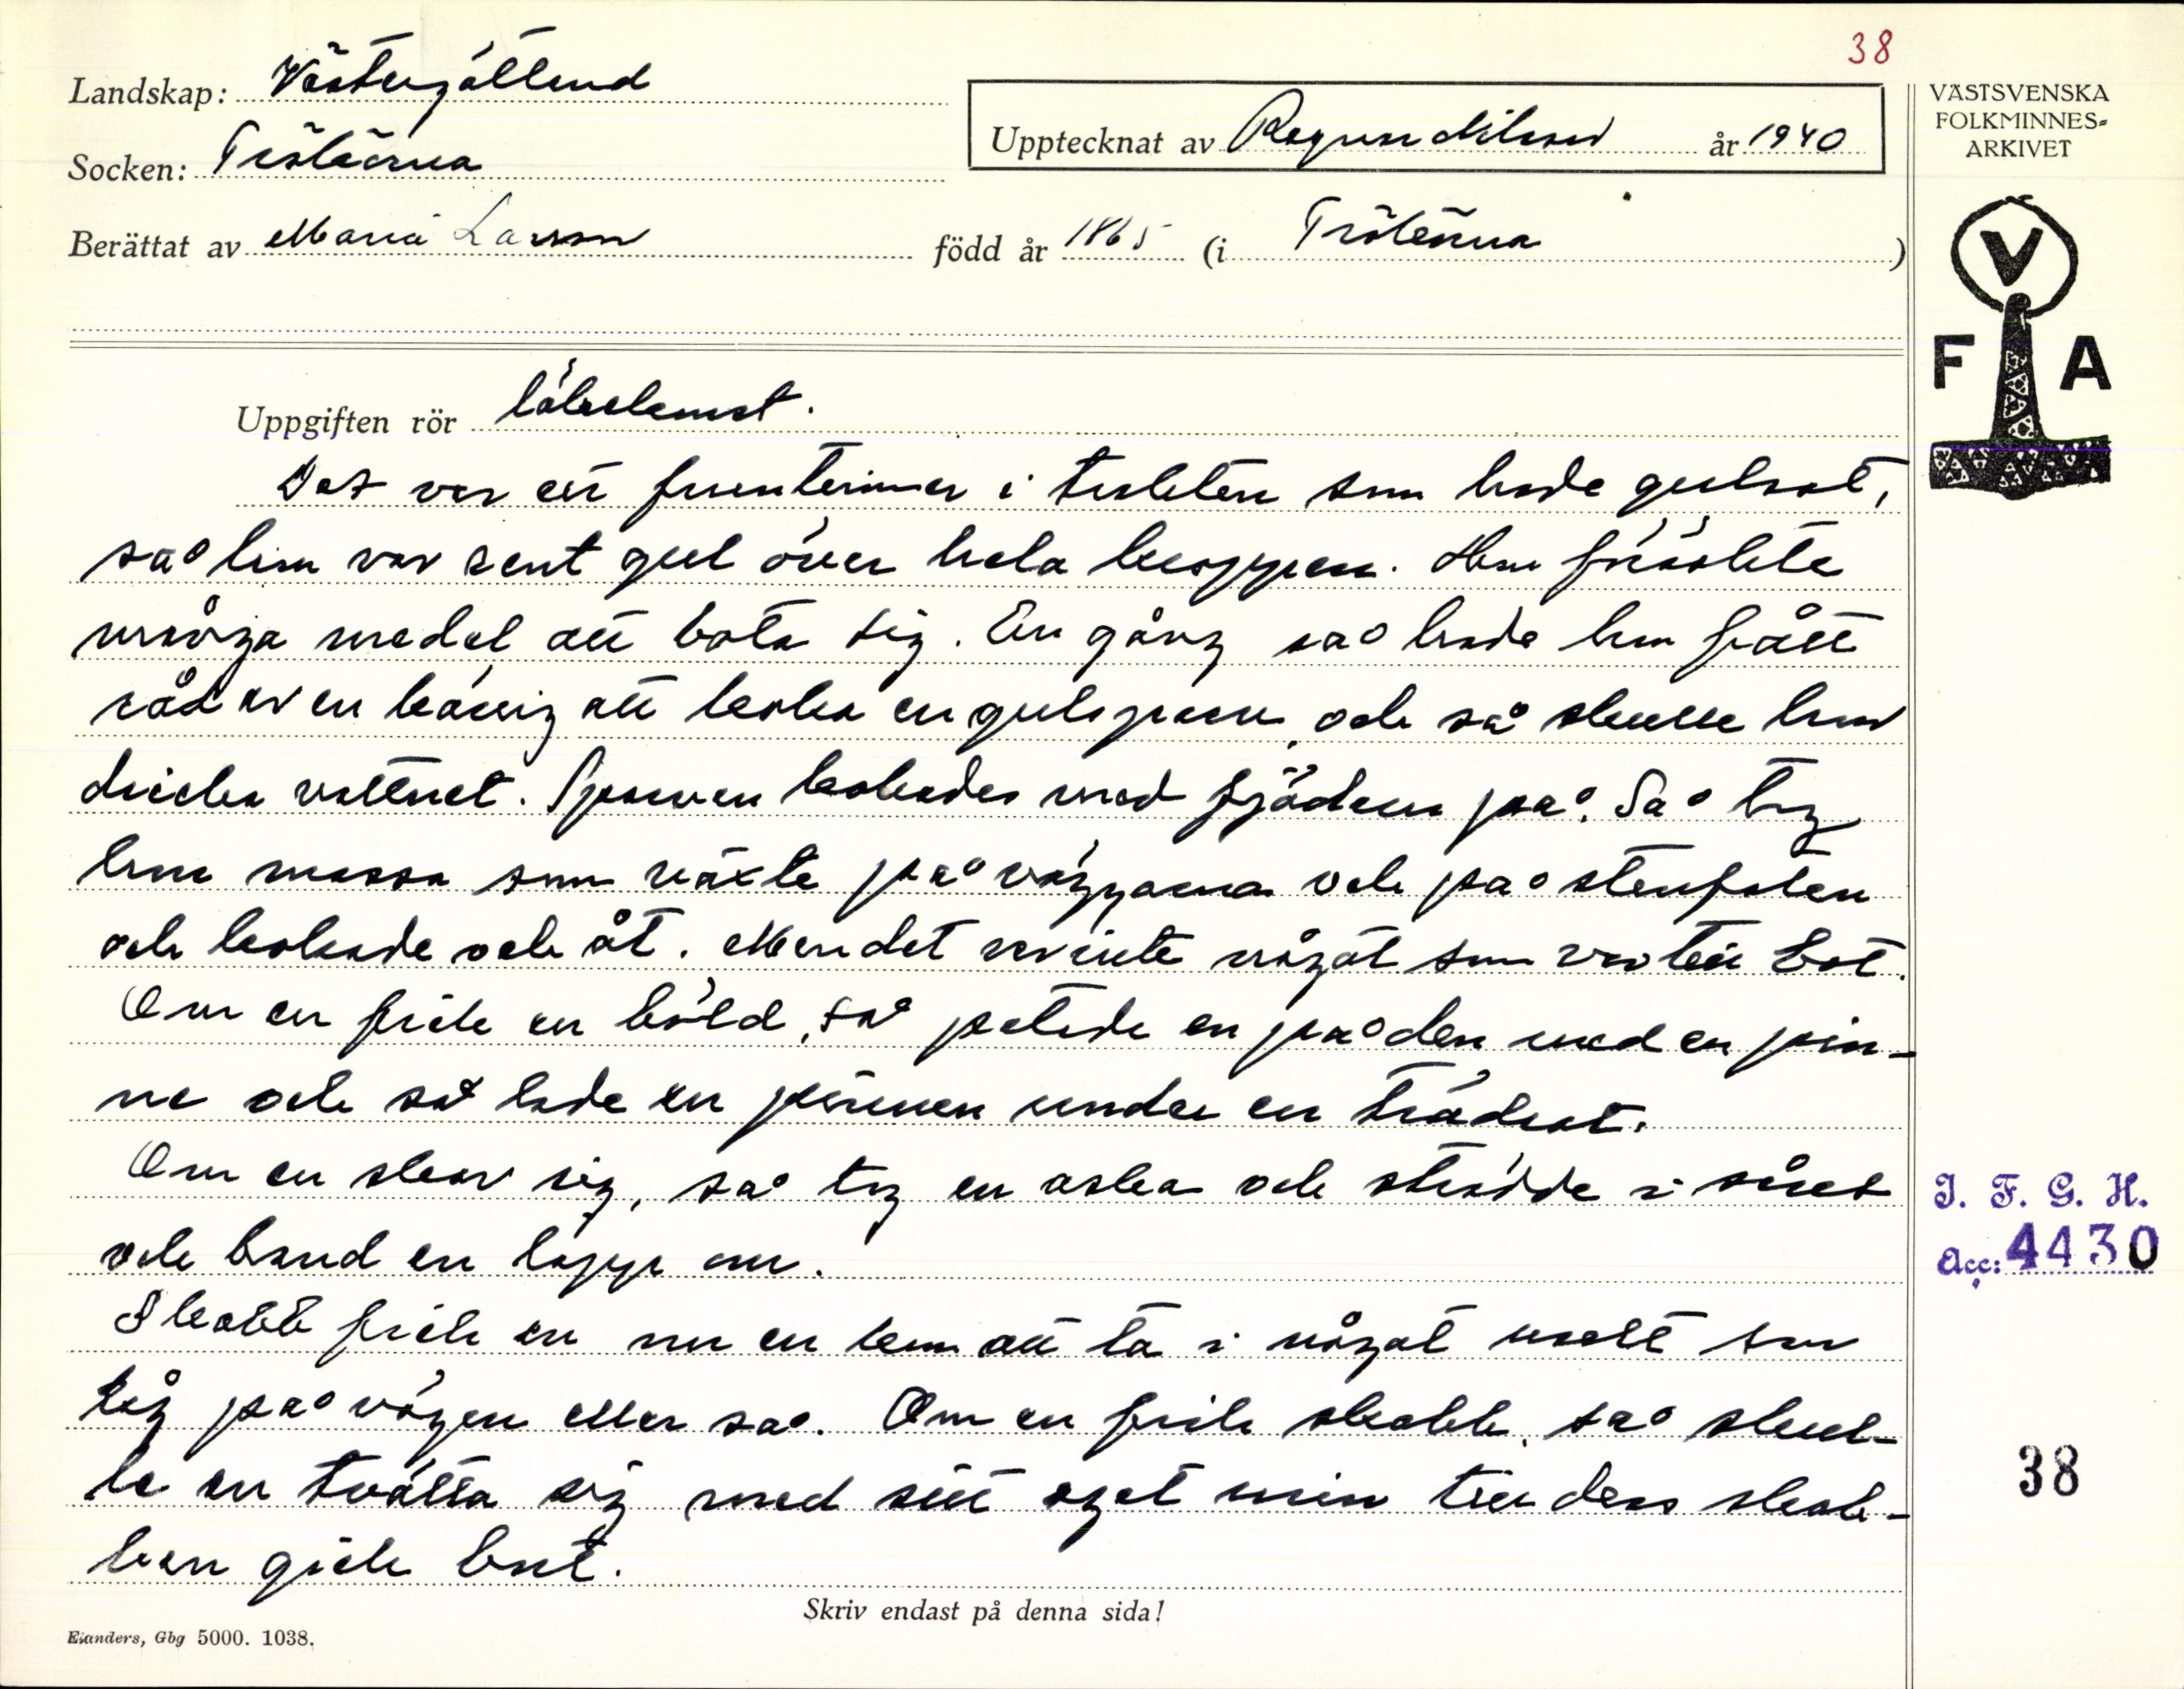 38
Landskap: Västergötland
Socken: Trökörna
Upptecknat av Ragnar Nilsson år 1940
Berättat av Maria Larsson född år 1865 (i Trökörna)
VÄSTSVENSKA
FOLKMINNES-
ARKIVET
V
F A
Uppgiften rör läkekonst.
Det var ett fruntimmer i trakten som hade gulsot,
så hon var rent gul över hela kroppen. Hon försökte
många medel att bota sig. En gång så hade hon fått
råd av en käring att koka en gulsparv, och så skulle hon
dricka vattnet. Sparven kokades med fjädern på. Så tog
hon mossa som växte på väggarna och på stenfoten
och kokade och åt. Men det var inte något som var till bot.
Om en fick en böld, så petade en på den med en pin-
ne och så lade en pinnen under en trädrot.
Om en skar sig, så tog en aska och strödde i såret
och band en lapp om.
Skabb fick en om en kom att ta i något uselt som
låg på vägen eller så. Om en fick skabb, så skul-
le en tvätta sig med sitt eget urin till dess skab-
ben gick bort.
Skriv endast på denna sida!
Elanders, Gbg 5000. 1038.
I. F. G. H.
Acc: 4430
38